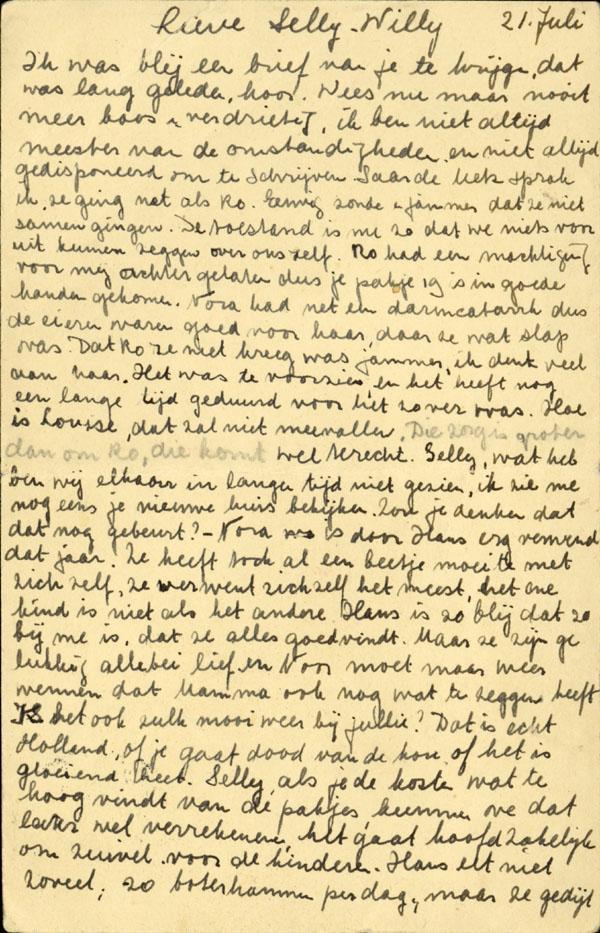 Lieve Selly-Willy 21. Juli
Ik was blij een brief van je te krijgen, dat
was lang geleden, hoor. Wees nu maar nooit
meer boos n verdrietig, ik ben niet altijd
meester van de omstandigheden en niet altijd
gedisponeerd om te schrijven. Saar de sprak
ik, ze ging net als Ro. Eeuwig zonde n jammer dat ze niet
samen gingen. De toestand is nu zo dat we niets voor
uit kunnen zeggen over ons zelf. Ro had een machtiging
voor mij achter gelaten dus je pakje 19 is in goede
handen gekomen. Nora had net een darmcatarrh dus
de eieren waren goed voor haar, daar ze wat slap
was. Dat Ro ze niet kreeg was jammer, ik denk veel
aan haar. Het was te voorzien en het heeft nog
een lange tijd geduurd voor het zover was. Hoe
is Louise, dat zal niet meevallen. Die zorg is groter
dan om Ro, die komt wel terecht. Selly, wat heb
ben wij elkaar in lange tijd niet gezien, ik zie me
nog eens je nieuwe huis bekijken. Zou je denken dat
dat nog gebeurt? - Nora is door Hans erg verwend
dat jaar. Ze heeft toch al een beetje moeite met
zich zelf, ze verwent zichzelf het meest, het ene
kind is niet als het andere. Hans is zo blij dat ze
bij me is, dat ze alles goedvindt. Maar ze zijn ge
lukkig allebei lief en Noor moet maar weer
wennen dat Mamma ook nog wat te zeggen heeft
Is het ook zulk mooi weer bij jullie? Dat is echt
Holland, of je gaat dood van de kou of het is
gloeiend heet. Selly, als je de kosten wat te
hoog vindt van de pakjes kunnen we dat
later wel verrekenen, het gaat hoofdzakelijk
om zuivel voor de kinderen. Hans eet niet
zoveel, 20 boterhammen per dag, maar ze gedijt